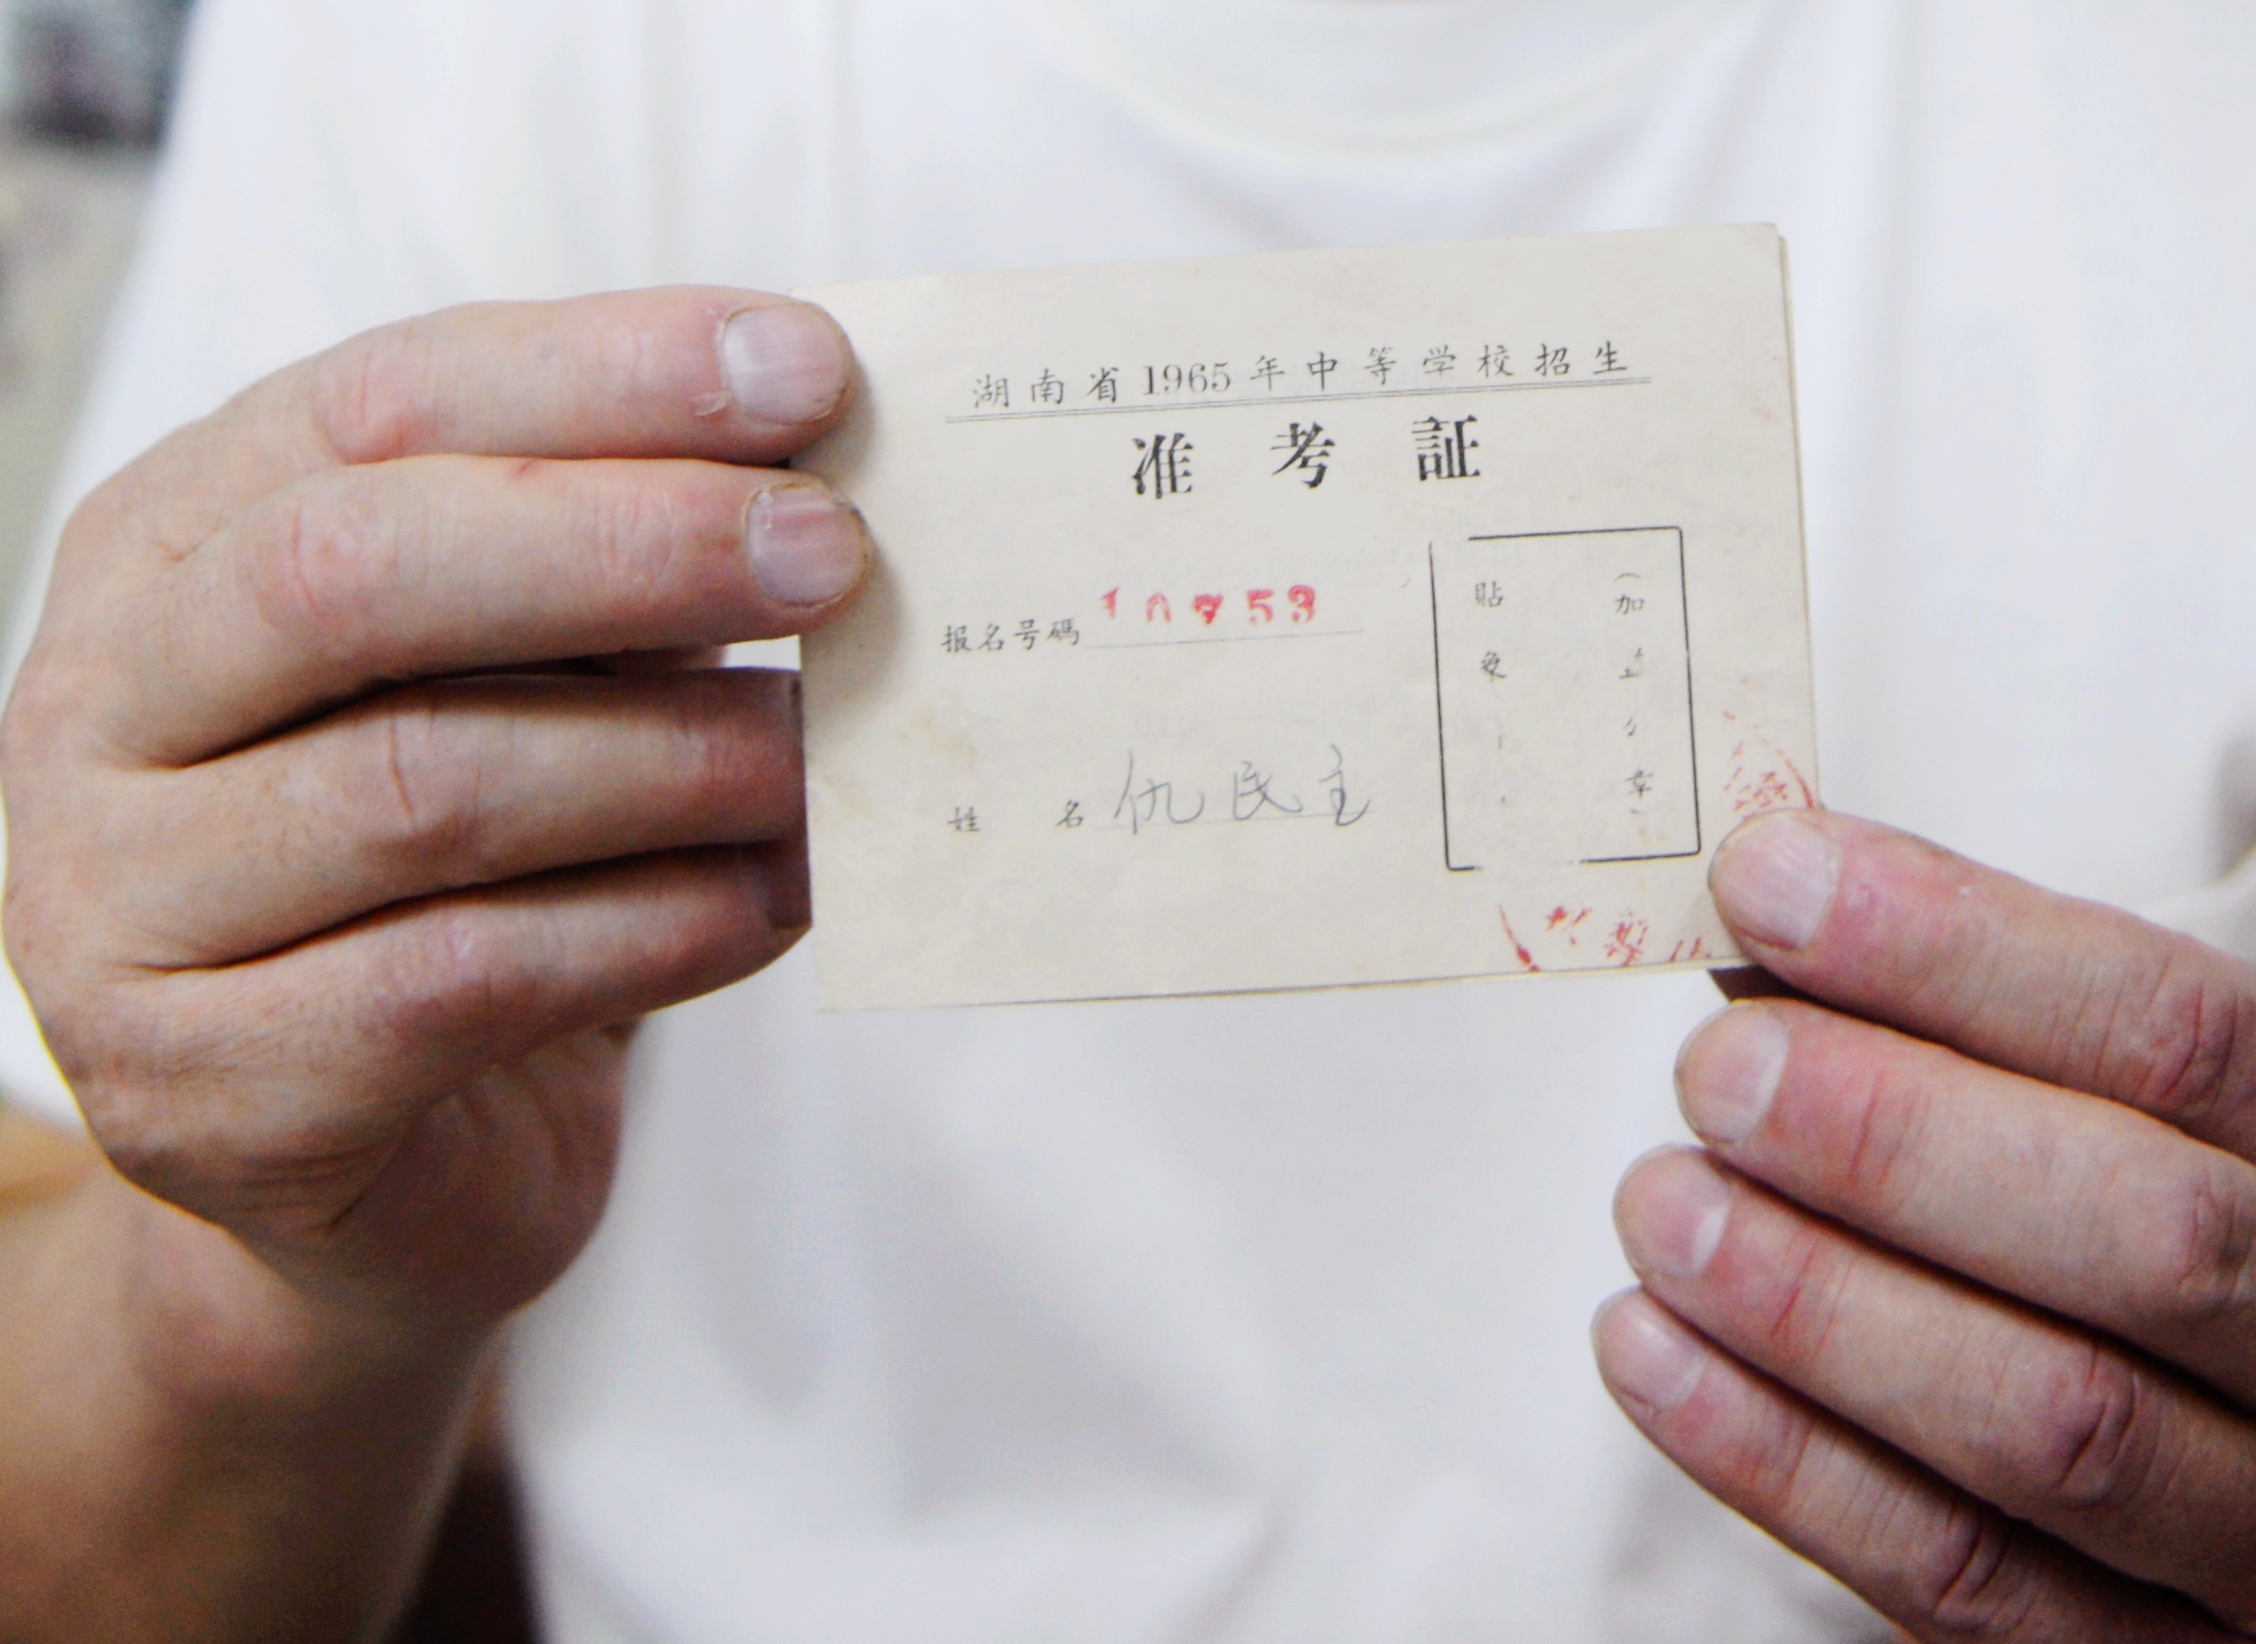 湖南省1965年中等学校招生
准考証
报名号碼 10753
姓名 仇民主
貼
(加 章)